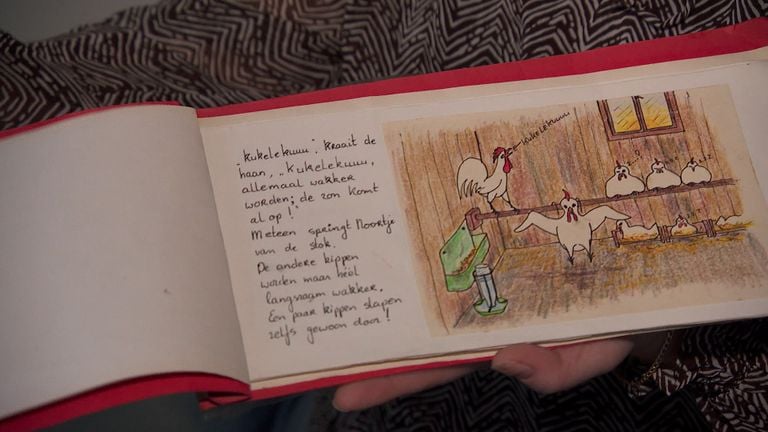 „Kukelekuuu", kraait de
haan, „Kukelekuuu,
allemaal wakker
worden; de zon komt
al op!"
Meteen springt Noortje
van de stok.
De andere kippen
worden maar héél
langzaam wakker.
Een paar kippen slapen
zelfs gewoon door!
Kukelekuuu